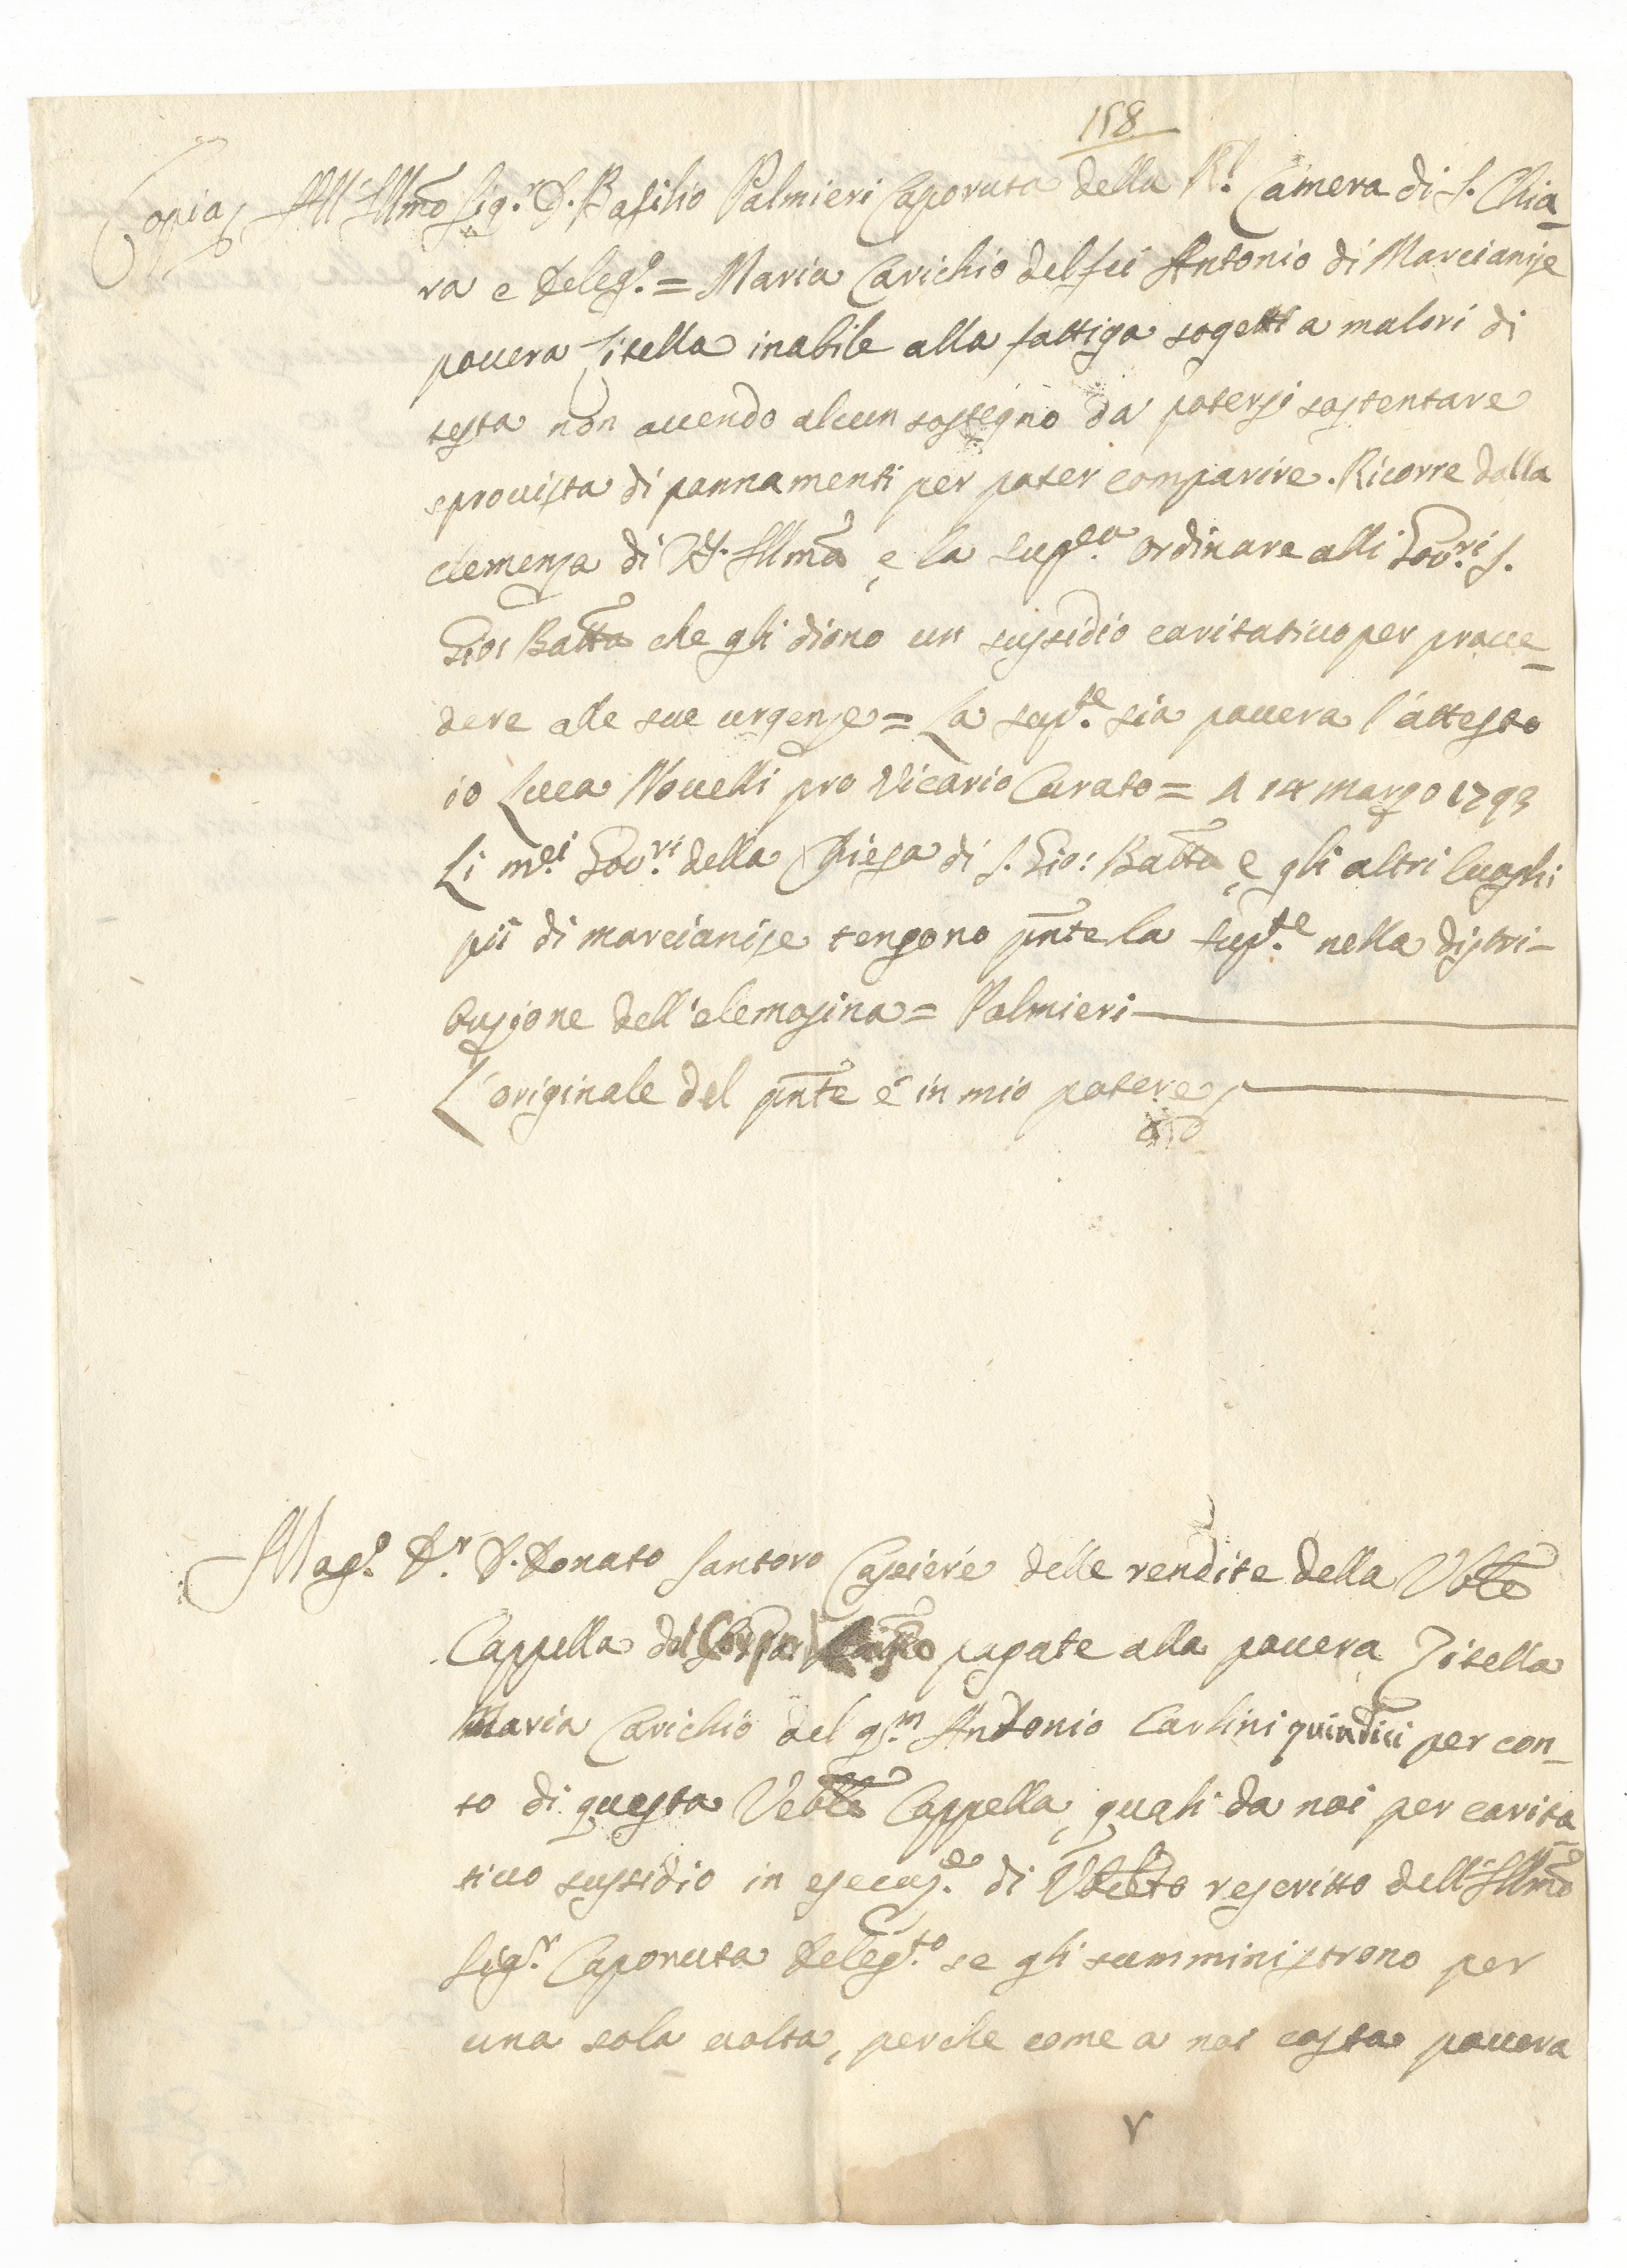 158
Copia All'Illmo Sig.r D. Basilio Palmieri Caporuta della R.l Camera di S. Chia-
ra e Deleg.o = Maria Carichio del fu Antonio di Marcianise
povera Zitella inabile alla fattiga sogetta a malori di
testa non avendo alcun sostegno da potersi sostentare
sprovista di pannamenti per poter comparire. Ricorre dalla
clemenza di V.S. Illma e la sup.ca ordinare alli Gov.ri S.
Gio: Batta che gli diono un sussidio caritativo per prove-
dere alle sue urgenze = La sup.te sia povera l'attesto
io Luca Novelli pro Vicario Curato = A 14 marzo 1793
Li m.ci Gov.ri della Chiesa di S. Gio: Batta e gli altri luoghi
pii di marcianise tengono pnte la sup.te nella distri-
buzione dell'elemosina = Palmieri
L'originale del pnte é in mio potere
Mag.o D.r D. Donato Santoro Cassiere delle rendite della Vble
Cappella del Corpo pagate alla povera Zitella
Maria Carichio del q.m Antonio Carlini quindici per con-
to di questa Veble Cappella, quali da noi per carita
tivo sussidio in esecuz.e di reseritto dell'Illmo
Sig.r Caporuta Deleg.to se gli sumministrono per
una sola volta, perche come a noi costa povera